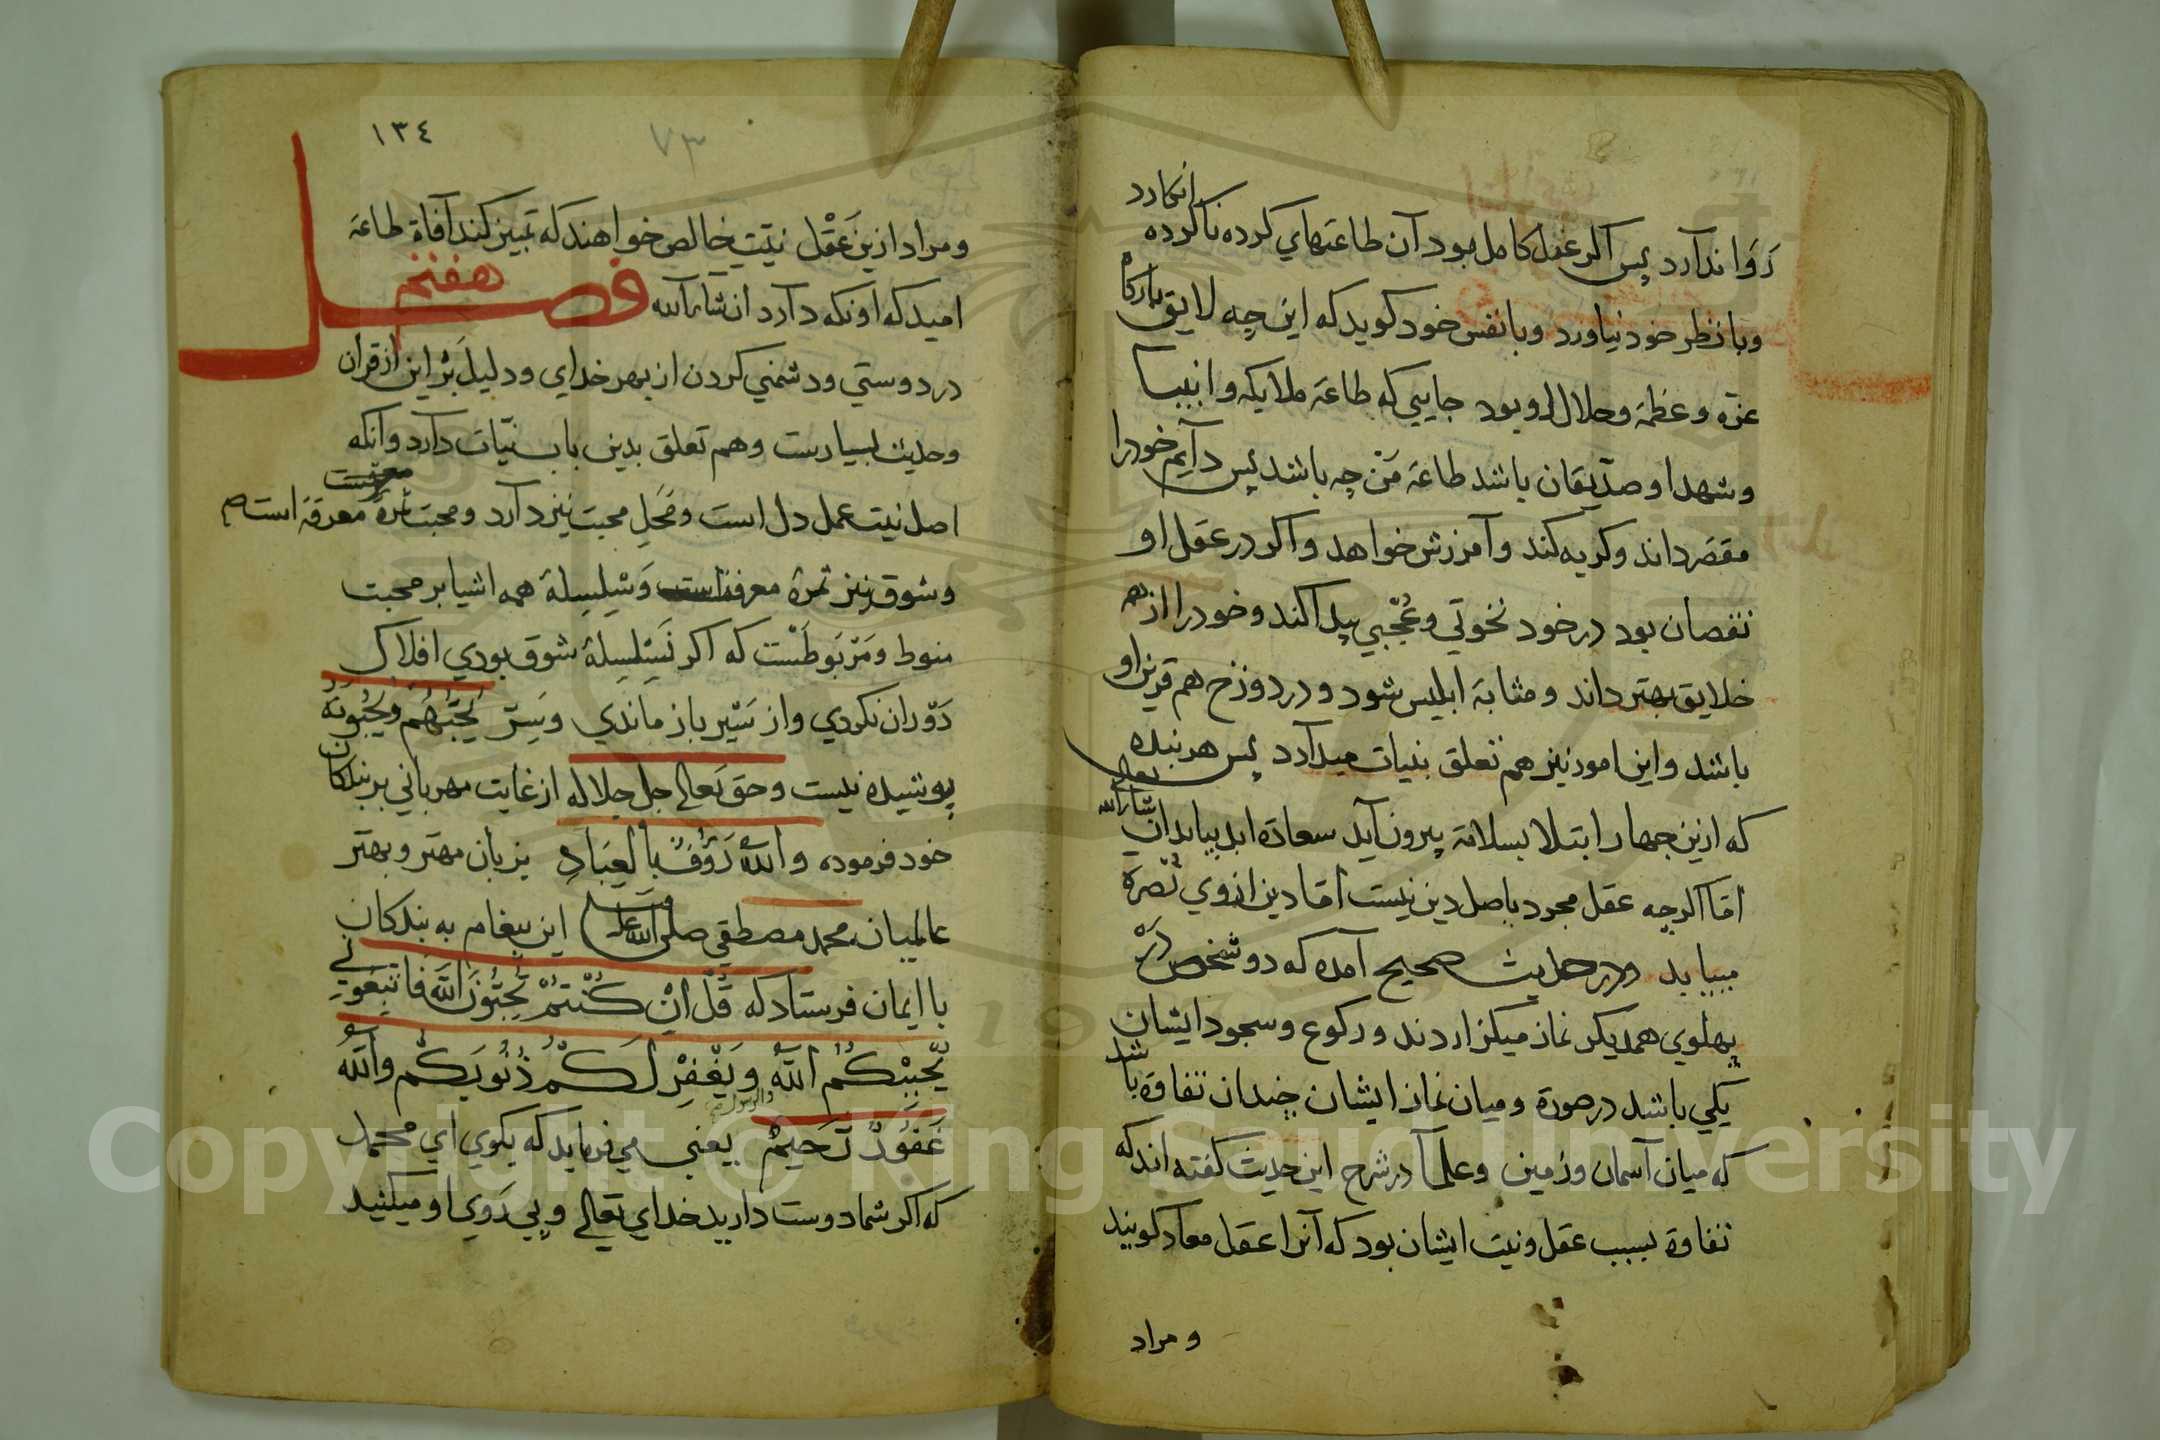 روا ندارد پس اکر عقل کامل بود آن طاعتهاي کرده ناکرده
انکارد
وبا نظر خود نیاورد وبا نفس خود کوید که این چه لایق بارکاه
عزة وعظمة وجلال او بود جایي که طاعة ملایکه وانبیا
وشهدا وصدیقان باشد طاعة من چه باشد پس دایم خودرا
مقصر داند وکریه کند وآمرزش خواهد واکر در عقل او
نقصان بود در خود نخوتي وعُجبي پیدا کند وخودرا از همه
خلایق بهتر داند ومثابة ابلیس شود ودر دوزخ هم قرین او
باشد واین امور نیز هم تعلق بنیات میدارد پس هر بنده
که ازین جهار ابتلا بسلامة بیرون آید سعادة ابد بیابد ان شاءالله تعالی
اما اکرچه عقل مجرد باصل دین نیست اما دین ازوي نُصرة
مییابد ودر حدیث صحیح آمده که دو شخص در
پهلوي همدیکر نماز میکزاردند ورکوع وسجود ایشان
یکي باشد در صورة ومیان نماز ایشان چندان تفاوة باشد
که میان آسمان وزمین وعلما در شرح این حدیث کفته اند که
تفاوة بسبب عقل ونیت ایشان بود که آنرا عقل معاد کویند
ومراد
١٣٤
٧٣
ومراد ازین عَقْل نیّت خالص خواهند که تمییز کند آفاة طاعة
امید که او نکه دارد ان شاءالله فصل هفتم
در دوستي ودشمني کردن از بهر خداي ودلیل بر این از قران
وحدیث بسیارست وهم تعلق بدین باب نیّات دارد وآنکه
اصل نیت عمل دل است ومَحَلِ محبت نیز دارد ومحبت ثمرة معرفة است
وشوق نیز ثمرة معرفة است وسِلسِلة همه اشیا بر محبت
منوط ومَرْبوطَسْت که اکر نه سِلسِلة شوق بودي افلاک
دَوْران نکردي واز سَیْر باز ماندي وسِرّ یُحِبُّهُم ویُحِبُّونَهُ
پوشیده نیست وحق تعالی جل جلاله از غایت مهرباني بر بندکان
خود فرموده والله رَؤُفٌ بِالعِبَادِ بزبان مهتر وبهتر
عالمیان محمد مصطفي صلی الله علیه وسلم این پیغام به بندکان
با ایمان فرستاد که قُلْ اِنْ کُنْتُمْ تُحِبُّونَ اللّٰهَ فَاتَّبِعُونِي
یُحْبِبْکُمُ اللّٰهُ وَیَغْفِرْ لَکُمْ ذُنُوبَکُمْ وَاللّٰهُ
غَفُورٌ رَحیمٌ یعني مي فرماید که بکوي اي محمد
که اکر شما دوست دارید خداي تعالی وپي رَوي او میکنید
Copyright © King Saud University